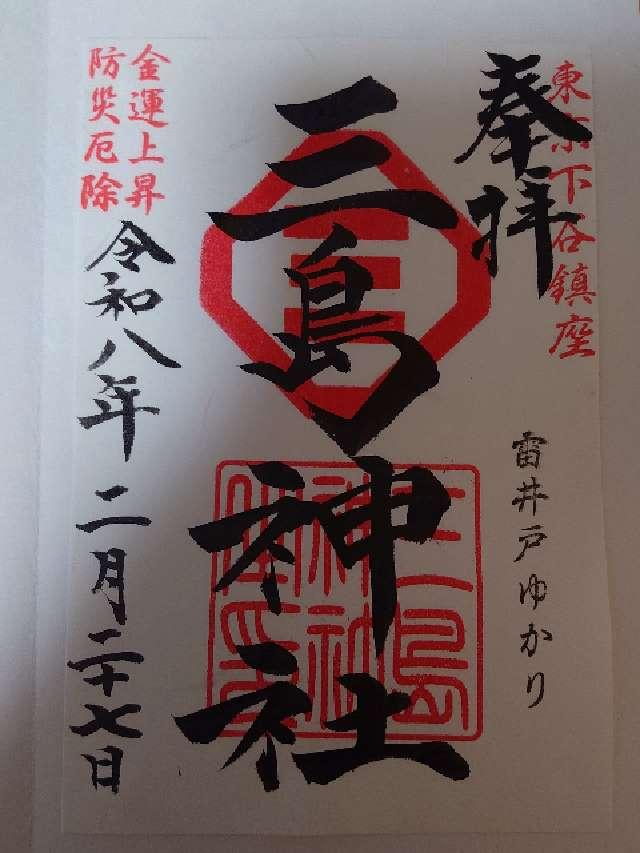 東京下谷鎮座
奉拝
雷井戸ゆかり
三島神社
三島
神社
金運上昇
防災厄除
令和八年二月二十七日